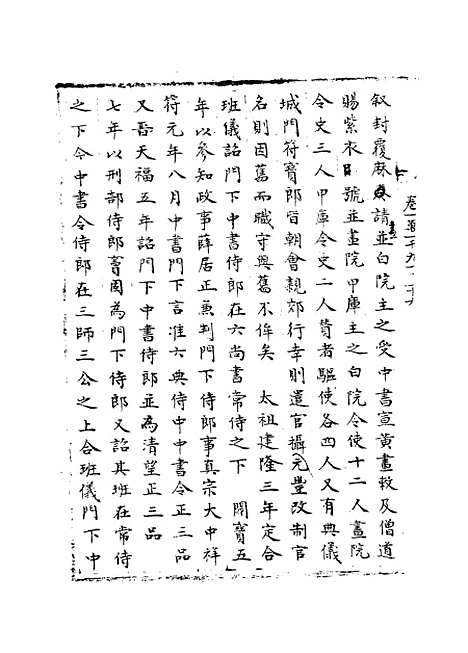 叙封覆麻請並白院主之受中書宣黃畫敕及僧道
賜紫衣師號並畫院甲庫主之白院令使十二人畫院
令史三人甲庫令史二人贊者驅使各四人又有典儀
城門符寶郎皆朝會親郊行幸則遣官攝元豐改制官
名則因舊而職守與舊不侔矣 太祖建隆三年定合
班儀詔門下中書侍郎在六尚書常侍之下 開寶五
年以參知政事薛居正兼判門下侍郎事真宗大中祥
符元年八月中書門下言准六典侍中中書令正二品
又晉天福五年詔門下中書侍郎並為清望正三品
七年以刑部侍郎竇固為門下侍郎又詔其班在常侍
之下今中書令侍郎在三師三公之上合班儀門下中